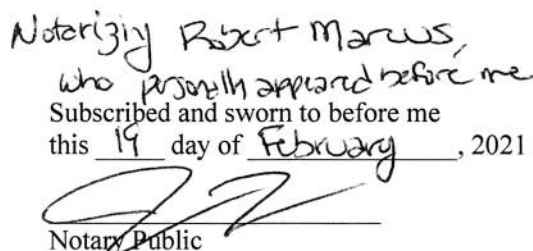 Notarizing Robert Marcus,
who personally appeared before me
Subscribed and sworn to before me
this 19 day of February, 2021
Notary Public